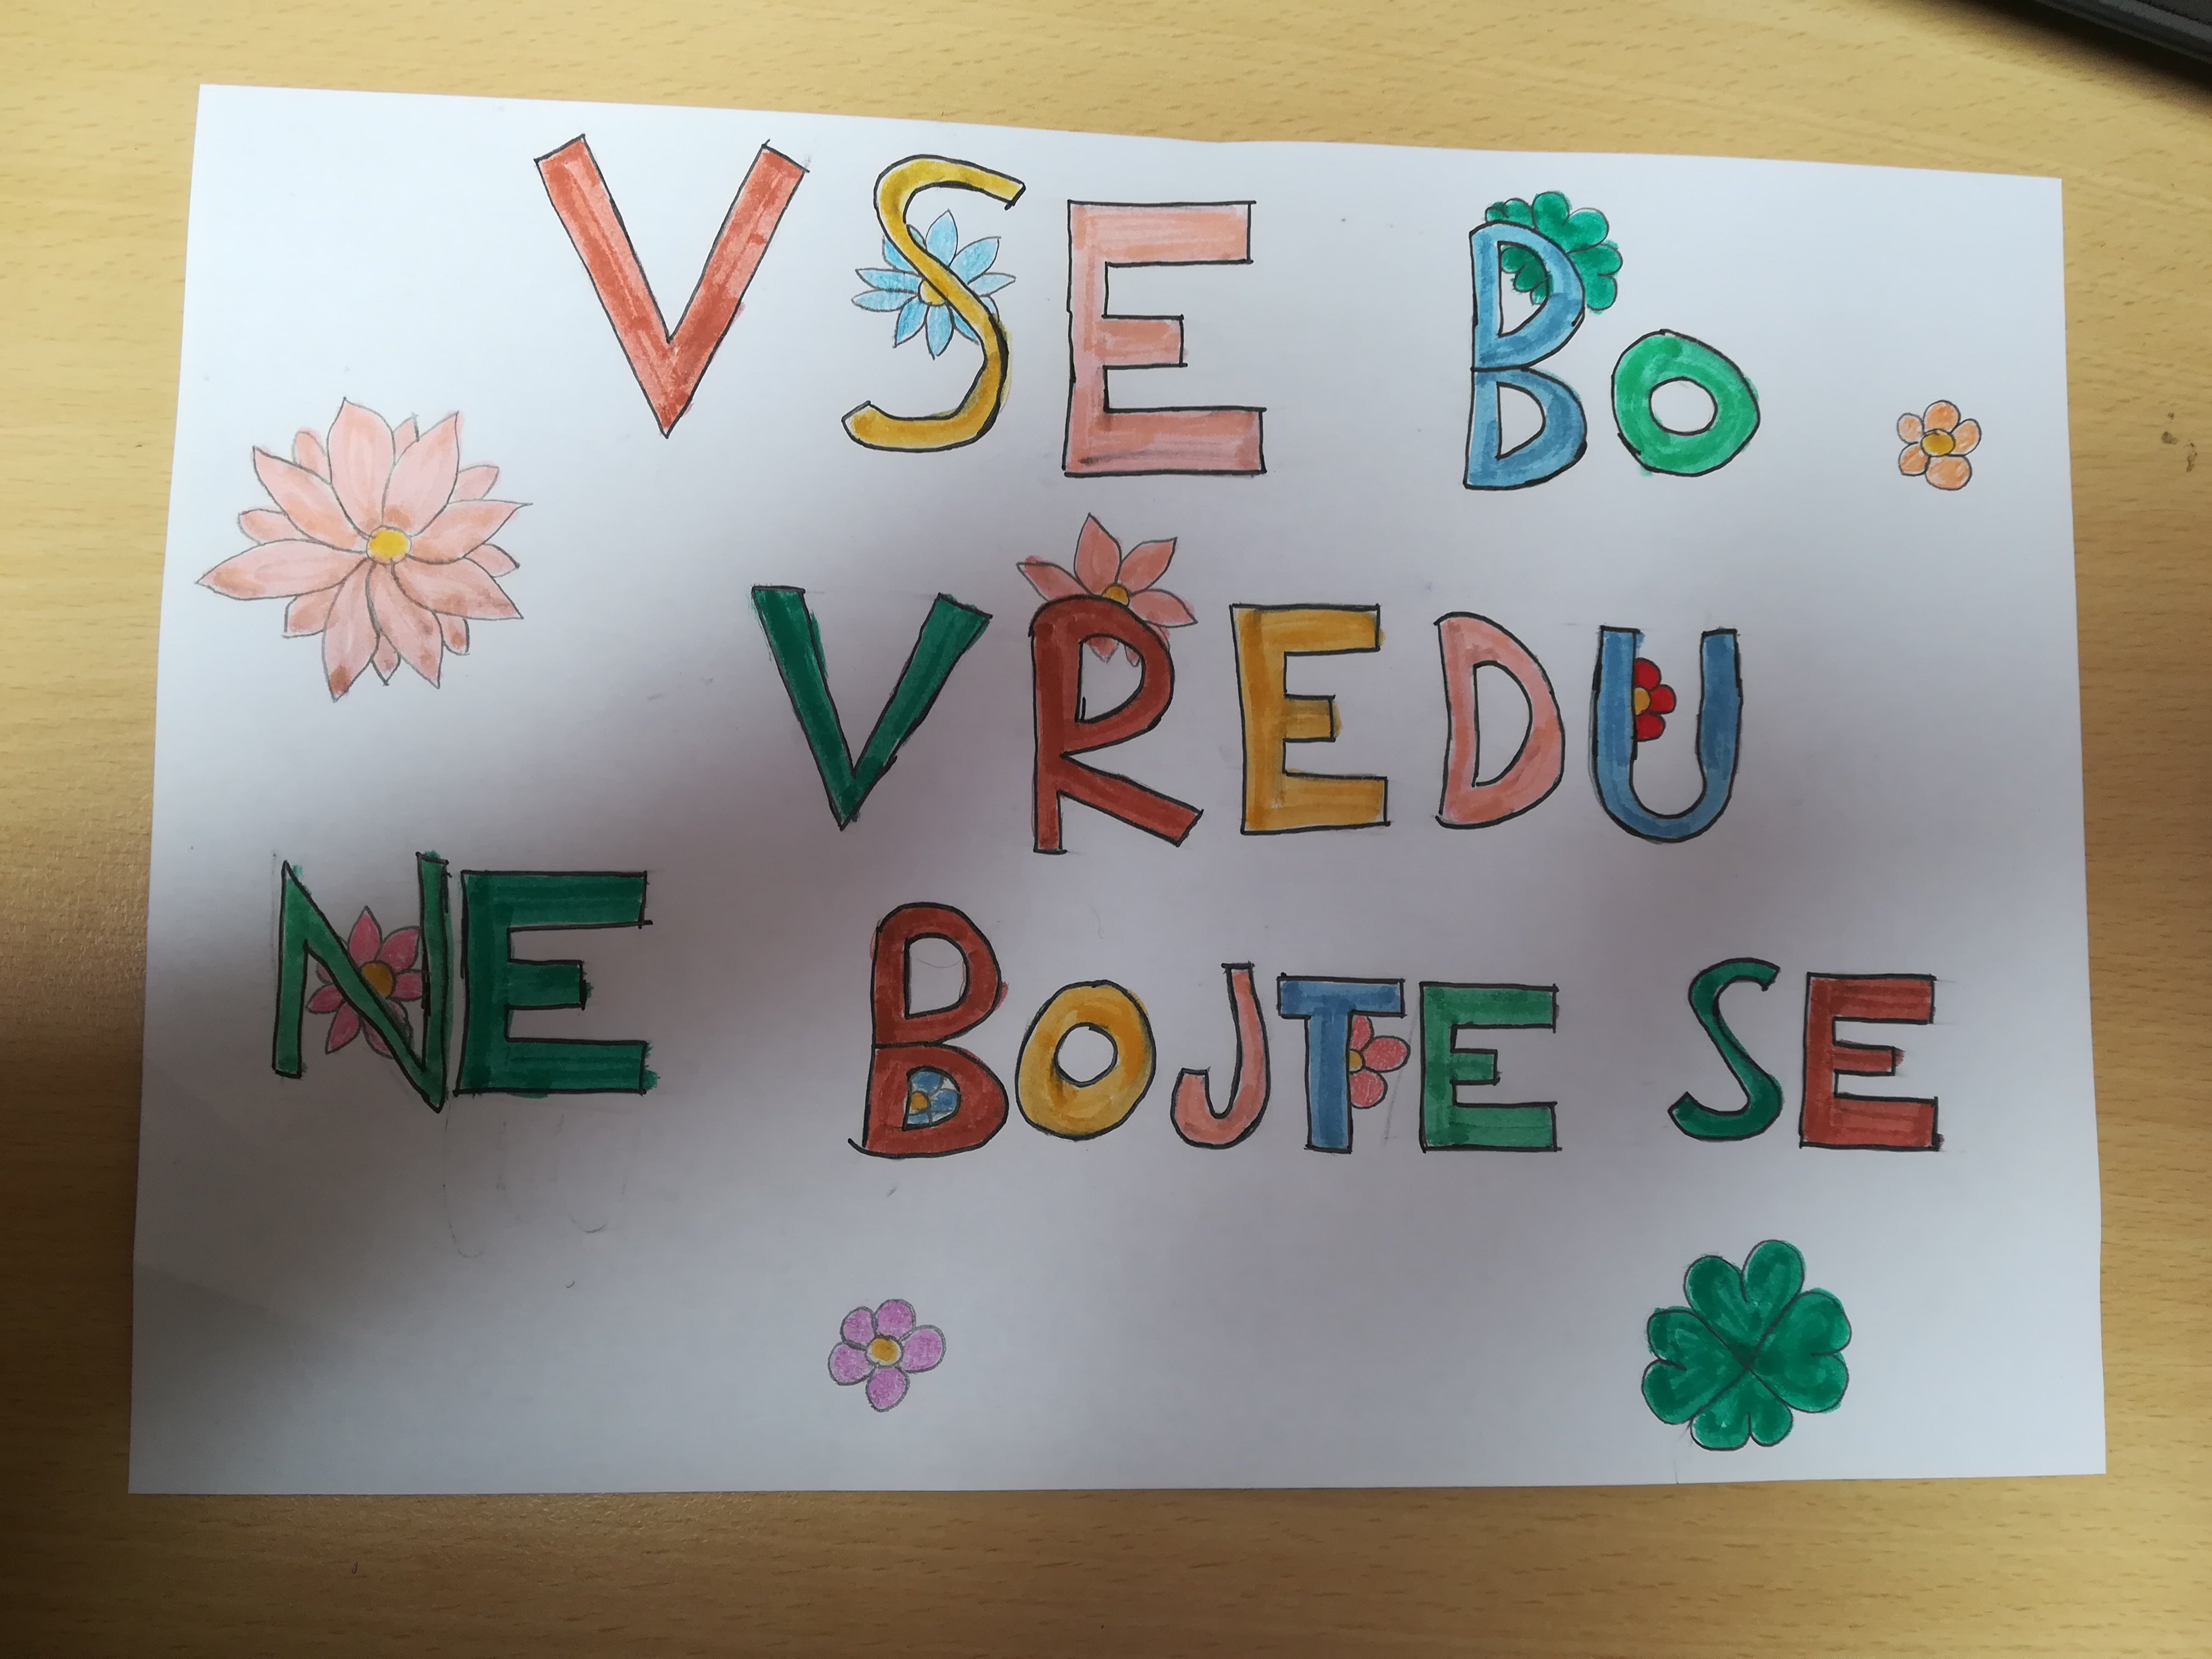 VSE BO
VREDU
NE BOJTE SE